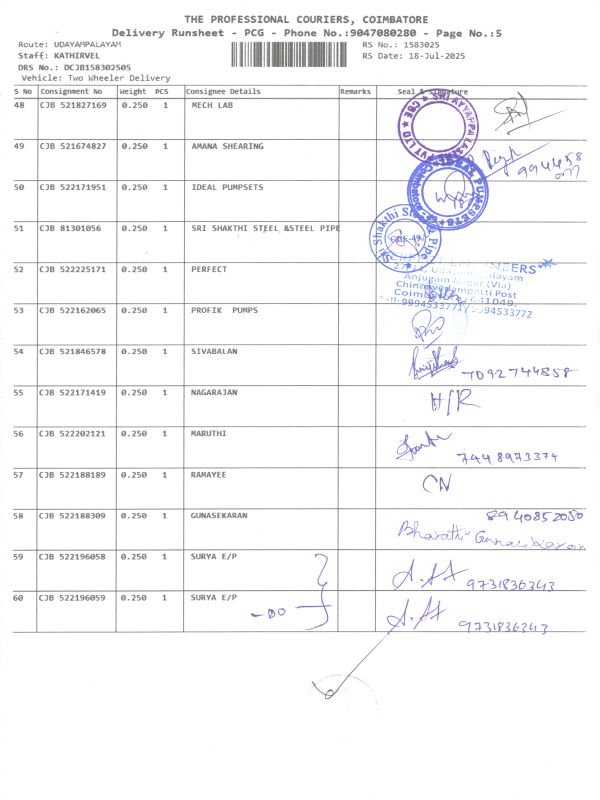 THE PROFESSIONAL COURIERS, COIMBATORE
Delivery Runsheet - PCG - Phone No.:9047080280 - Page No.:5
Route: UDAYAMPALAYAM RS No.: 1583025
Staff: KATHIRVEL RS Date: 18-Jul-2025
DRS No.: DCJB158302505
Vehicle: Two Wheeler Delivery
S No Consignment No Weight PCS Consignee Details Remarks Seal & Signature
48 CJB 521827169 0.250 1 MECH LAB
49 CJB 521674827 0.250 1 AMANA SHEARING 994458
50 CJB 522171951 0.250 1 IDEAL PUMPSETS
51 CJB 81301056 0.250 1 SRI SHAKTHI STEEL &STEEL PIPE
52 CJB 522225171 0.250 1 PERFECT
Anjugam Nagar (Via)
Chinnavedampatti Post
53 CJB 522162065 0.250 1 PROFIK PUMPS
54 CJB 521846578 0.250 1 SIVABALAN 7092744858
55 CJB 522171419 0.250 1 NAGARAJAN H/R
56 CJB 522202121 0.250 1 MARUTHI 7448973374
57 CJB 522188189 0.250 1 RAMAYEE CN
58 CJB 522188309 0.250 1 GUNASEKARAN 8940852080
Bharathi Gunasekaran
59 CJB 522196058 0.250 1 SURYA E/P 9731836343
60 CJB 522196059 0.250 1 SURYA E/P -DO 9731836343